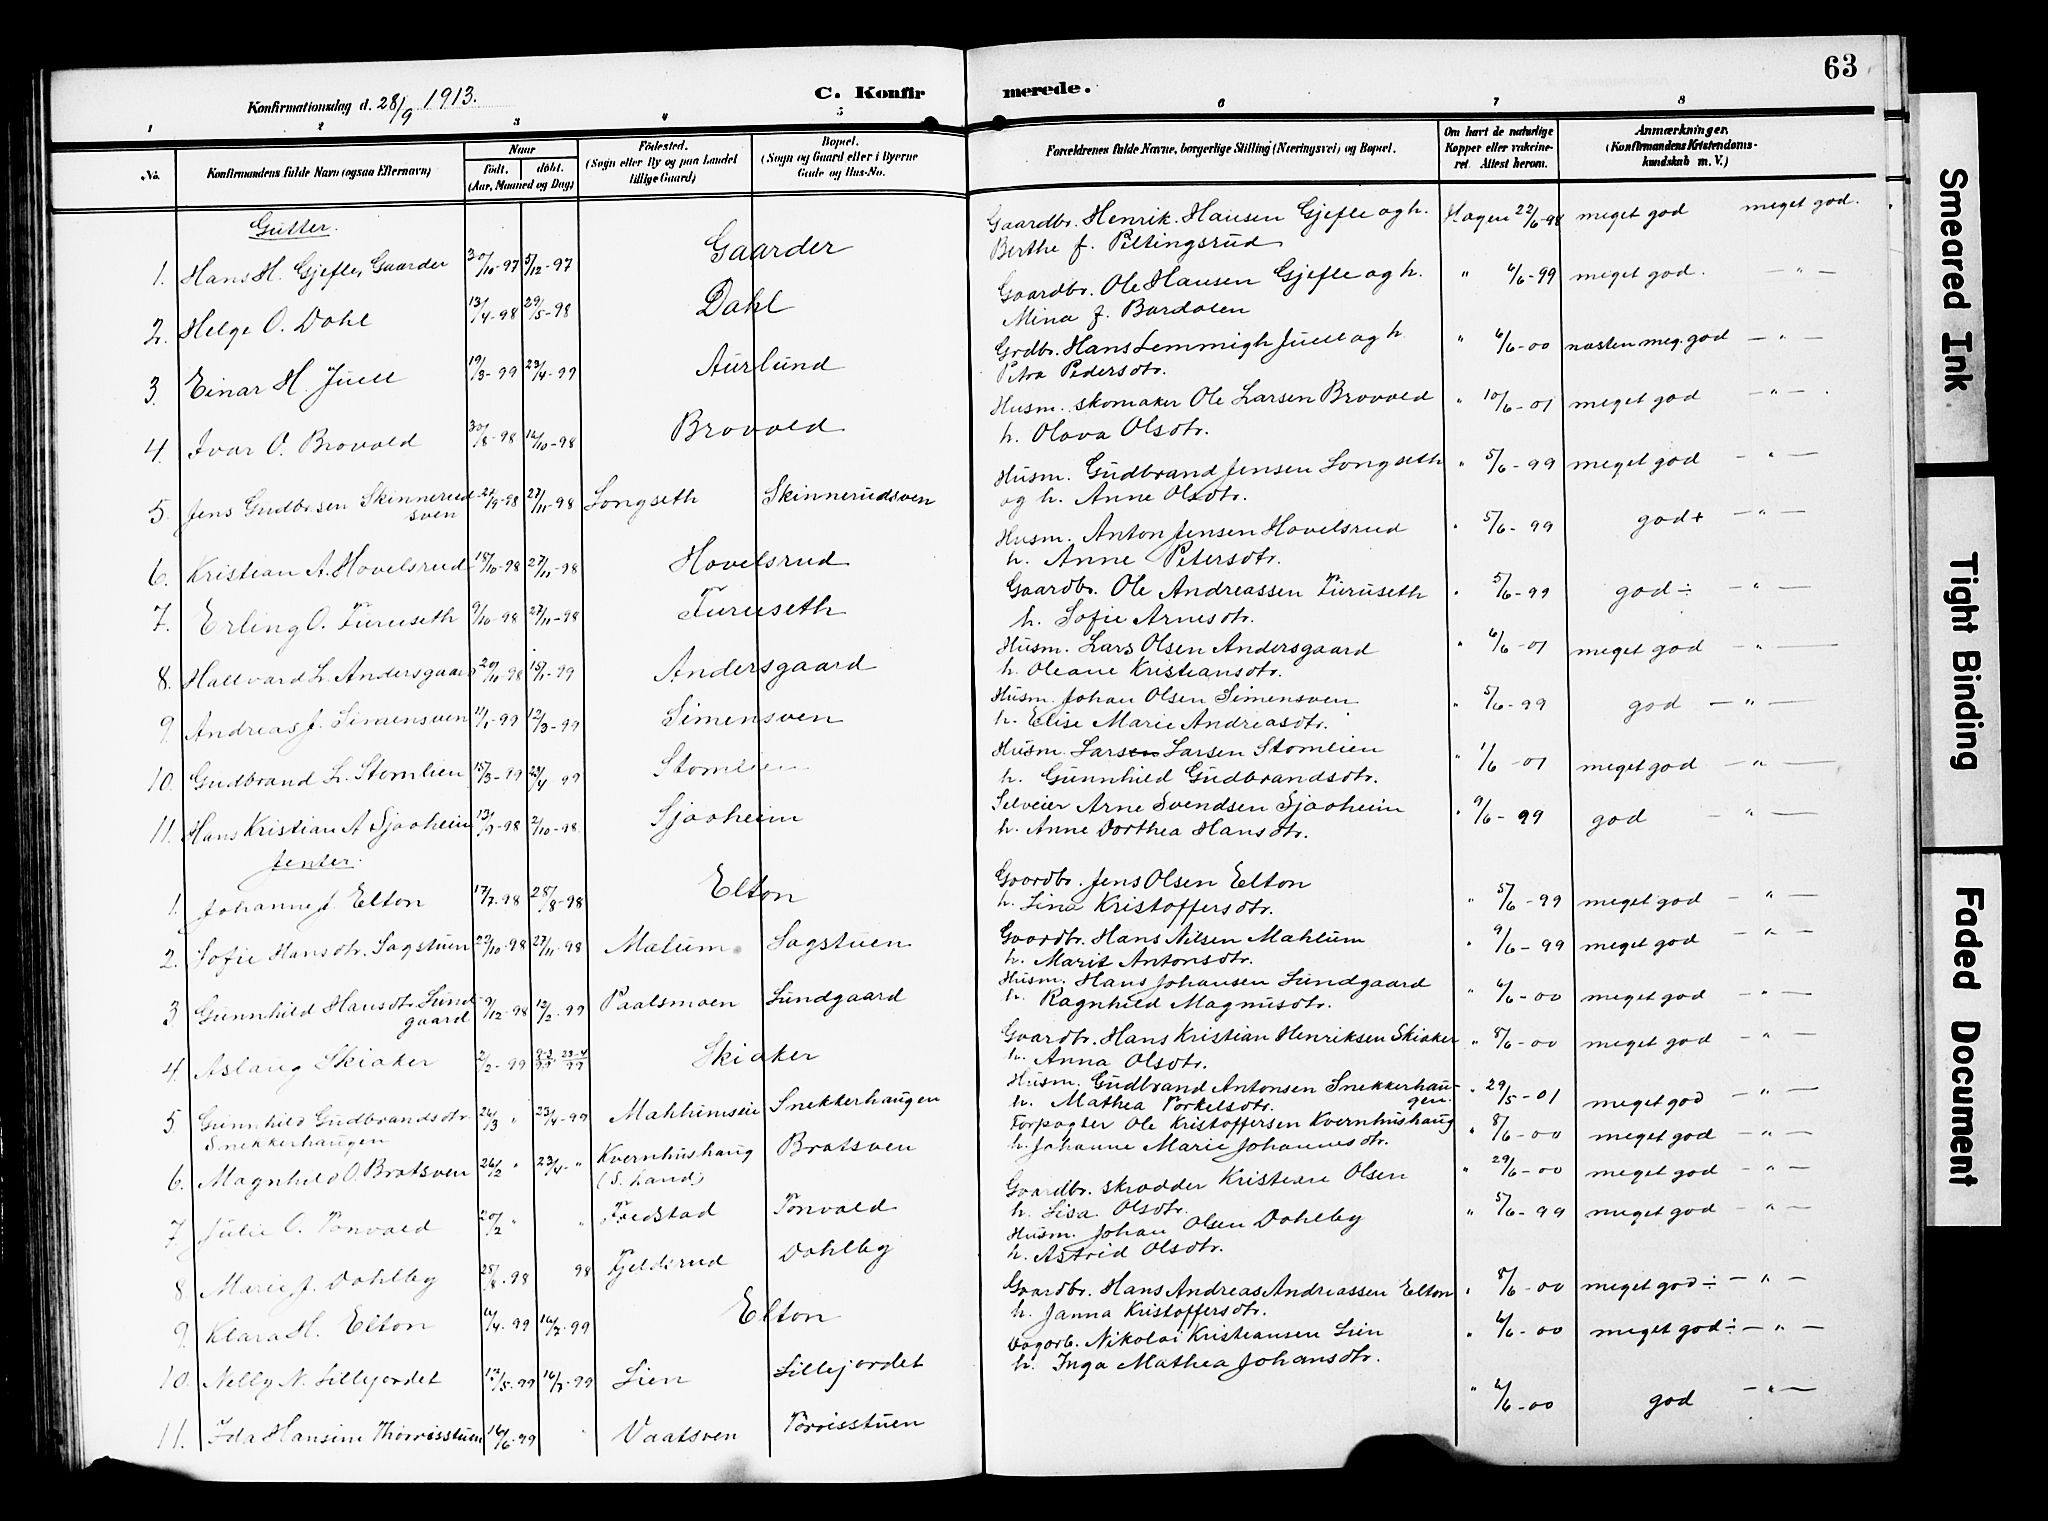 63
Konfirmationsdag d. 28/9 1913.
C. Konfirmerede.
1 2 3 4 5 6 7 8
No.
Konfirmandens fulde Navn (ogsaa Efternavn)
Naar
født. døbt.
(Aar, Maaned og Dag)
Fødested.
(Sogn eller By og paa Landet
tillige Gaard)
Bopæl.
(Sogn og Gaard eller i Byerne
Gade og Hus-No.
Forældrenes fulde Navne, borgerlige Stilling (Næringsvei) og Bopæl.
Om havt de naturlige
Kopper eller vakcine-
ret. Attest herom.
Anmærkninger,
(Konfirmandens Kristendoms-
kundskab m. V.)
Gutter.
1. Hans H. Gjefle, Gaarder 30/10-97 5/12-97 Gaarder Gaardbr. Henrik Hansen Gjefle og h. Hagen 22/6-98 meget god meget god.
Berthe f. Piltingsrud
2. Helge O. Dahl 13/4-98 29/5-98 Dahl Gaardbr. Ole Hansen Gjefle og h. " 6/6-99 meget god. — " —
Mina f. Bardalen
3. Einar H. Juell 19/3-99 23/4-99 Aurlund Grdbr. Hans Lemmigh Juell og h. " 6/6-00 næsten meg. god — " —
Petra Pedersdtr.
4. Ivar O. Brovold 30/8-98 16/10-98 Brovold Husm. skomaker Ole Larsen Brovold " 10/6-01 meget god — " —
h. Olava Olsdtr.
5. Jens Gudbrsen Skinnerud 98 27/11-98 Longseth Skinnerudsven Husm. Gudbrand Jensen Longseth " 5/6-99 meget god — " —
sven og h. Anne Olsdtr.
6. Kristian A. Hovelsrud 18/10-98 27/11-98 Hovelsrud Husm. Anton Jensen Hovelsrud " 5/6-99 god + — " —
h. Anne Petersdtr.
7. Erling O. Furuseth 9/10-98 27/11-98 Furuseth Gaardbr. Ole Andreassen Furuseth " 5/6-99 god ÷ — " —
h. Sofie Arnesdtr.
8. Hallvard L. Andersgaard 20/11-98 15/1-99 Andersgaard Husm. Lars Olsen Andersgaard " 6/6-01 meget god — " —
h. Oleane Kristiansdtr.
9. Andreas J. Simensven 11/1-99 12/3-99 Simensven Husm. Johan Olsen Simensven " 5/6-99 god — " —
h. Elise Marie Andreasdtr.
10. Gudbrand L. Stomlien 15/3-99 23/4 99 Stomlien Husm. Larsen Larsen Stomlien " 1/6-01 meget god — " —
h. Gunnhild Gudbrandsdtr.
11. Hans Kristian A Sjaaheim 13/9-98 2/10-98 Sjaaheim Selveier Arne Svendsen Sjaaheim " 9/6-99 god — " —
h. Anne Dorthea Hansdtr.
Jenter.
1. Johanne J. Elton 17/7-98 28/8-98 Elton Gaardbr. Jens Olsen Elton " 5/6-99 meget god — " —
h. Lina Kristoffersdtr.
2. Sofie Hansdtr. Sagstuen 23/10-98 27/11-98 Malum Sagstuen Gaardbr. Hans Nilsen Mahlum " 9/6-99 meget god — " —
h. Marit Antonsdtr.
3 Gunnhild Hansdtr. Lund 9/12-98 12/2-99 Paalsmoen Lundgaard Husm. Hans Johansen Lundgaard " 6/6-00 meget god — " —
gaard h. Ragnhild Magnusdtr.
4. Aslaug Skiaker 2/2-99 Skiaker Gaardbr. Hans Kristian Henriksen Skiaker " 8/6-00 meget god — " —
h. Anna Olsdtr.
5. Gunnhild Gudbrandsdtr 26/3 " 23/4-99 Snekkerhaugen Husm. Gudbrand Antonsen Snekkerhau- " 29/5-01 meget god — " —
Snekkerhaugen h. Mathea Torkelsdtr. gen.
6. Magnhild O. Bratsven 26/2 " 23/4-" Kvernhushaug Bratsven Forpagter Ole Kristoffersen Kvernhushaug " 8/6-00 meget god — " —
(S. Land) h. Johanne Marie Johannesdtr.
7 Julie O. Tonvald 20/2 " " Fredstad Tonvald Gaardbr. skrædder Kristian Olsen " 29/6-00 meget god — " —
h. Lisa Olsdtr.
8 Marie J. Dahlby 28/8-98 98 Fjeldsrud Dahlby Husm. Johan Olsen Dahlby " 5/6-99 meget god — " —
h. Astrid Olsdtr.
9. Klara H. Elton 4-99 16/7-99 Elton Gaardbr. Hans Andreas Andreassen Elton " 8/6-00 meget god ÷ — " —
h. Janna Kristoffersdtr.
10. Nelly N. Lillejordet 13/5-99 16/7-99 Lien Lillejordet Dagarb. Nikolai Kristiansen Lien " 6/6-00 meget god ÷ — " —
h. Inga Mathea Johansdtr.
11. Ida Hansine Thorrisstuen 16/6-99 " Vaatsven Torrisstuen " 6/6-00 god — " —
Smeared Ink
Tight Binding
Faded Document